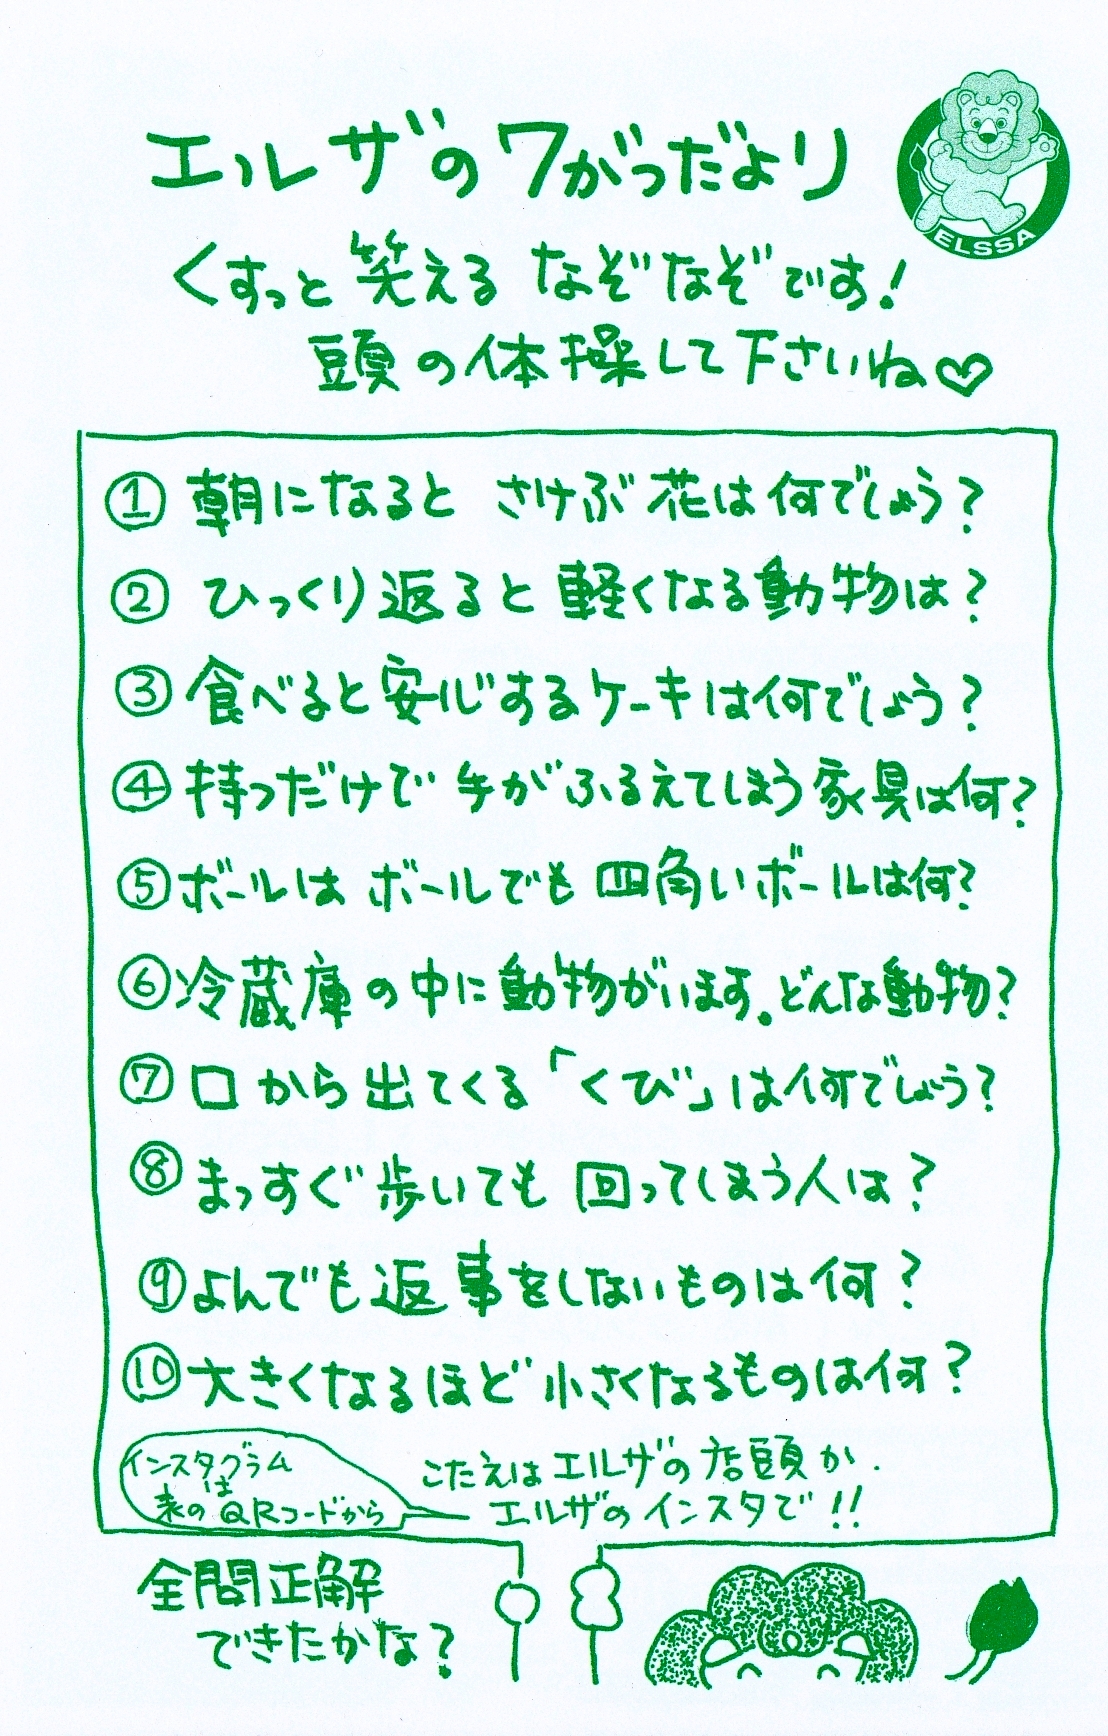 エルザの7がつだより
ELSSA
くすっと笑える なぞなぞです!
頭の体操して下さいね♡
① 朝になると さけぶ花は何でしょう?
② ひっくり返ると軽くなる動物は?
③ 食べると安心するケーキは何でしょう?
④ 持つだけで 手がふるえてしまう家具は何?
⑤ ボールは ボールでも 四角いボールは何?
⑥ 冷蔵庫の中に動物がいます。どんな動物?
⑦ 口から出てくる「くび」は何でしょう?
⑧ まっすぐ歩いても 回ってしまう人は?
⑨ よんでも返事をしないものは何?
⑩ 大きくなるほど小さくなるものは何?
インスタグラム
は
表のQRコードから
こたえはエルザの店頭か.
エルザのインスタで!!
全問正解
できたかな?